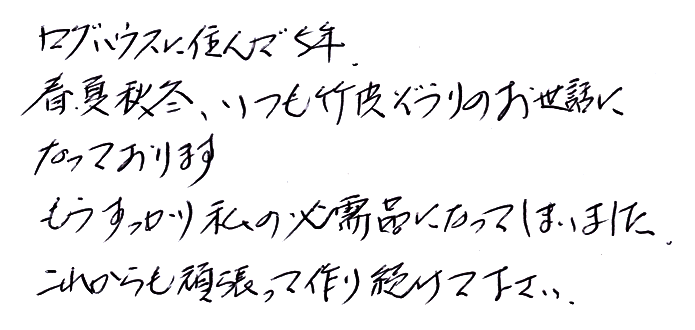 ログハウスに住んで5年.
春夏秋冬、いつも竹皮ぞうりのお世話に
なっております
もうすっかり私の必需品になってしまいました.
これからも頑張って作り続けて下さい.